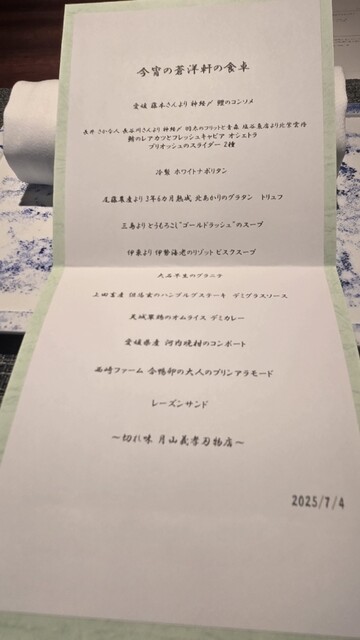 今宵の蒼洋軒の食卓
愛媛 藤本さんより 神経〆 鱧のコンソメ
長井 さかな人 長谷川さんより 神経〆 のフリットと青森 塩谷農店より北紫雲丹
鮪のレアカツとフレッシュキャビア オシェトラ
ブリオッシュのスライダー 2種
冷製 ホワイトナポリタン
遠藤農産より 3年6カ月熟成 北あかりのグラタン トリュフ
三島より とうもろこし"ゴールドラッシュ"のスープ
伊東より 伊勢海老のリゾット ビスクスープ
大石早生のグラニテ
上田畜産 但馬玄のハンブルグステーキ デミグラスソース
天城軍鶏のオムライス デミカレー
愛媛県産 河内晩柑のコンポート
西崎ファーム 合鴨卵の大人のプリンアラモード
レーズンサンド
～切れ味 月山義孝刃物店～
2025/7/4